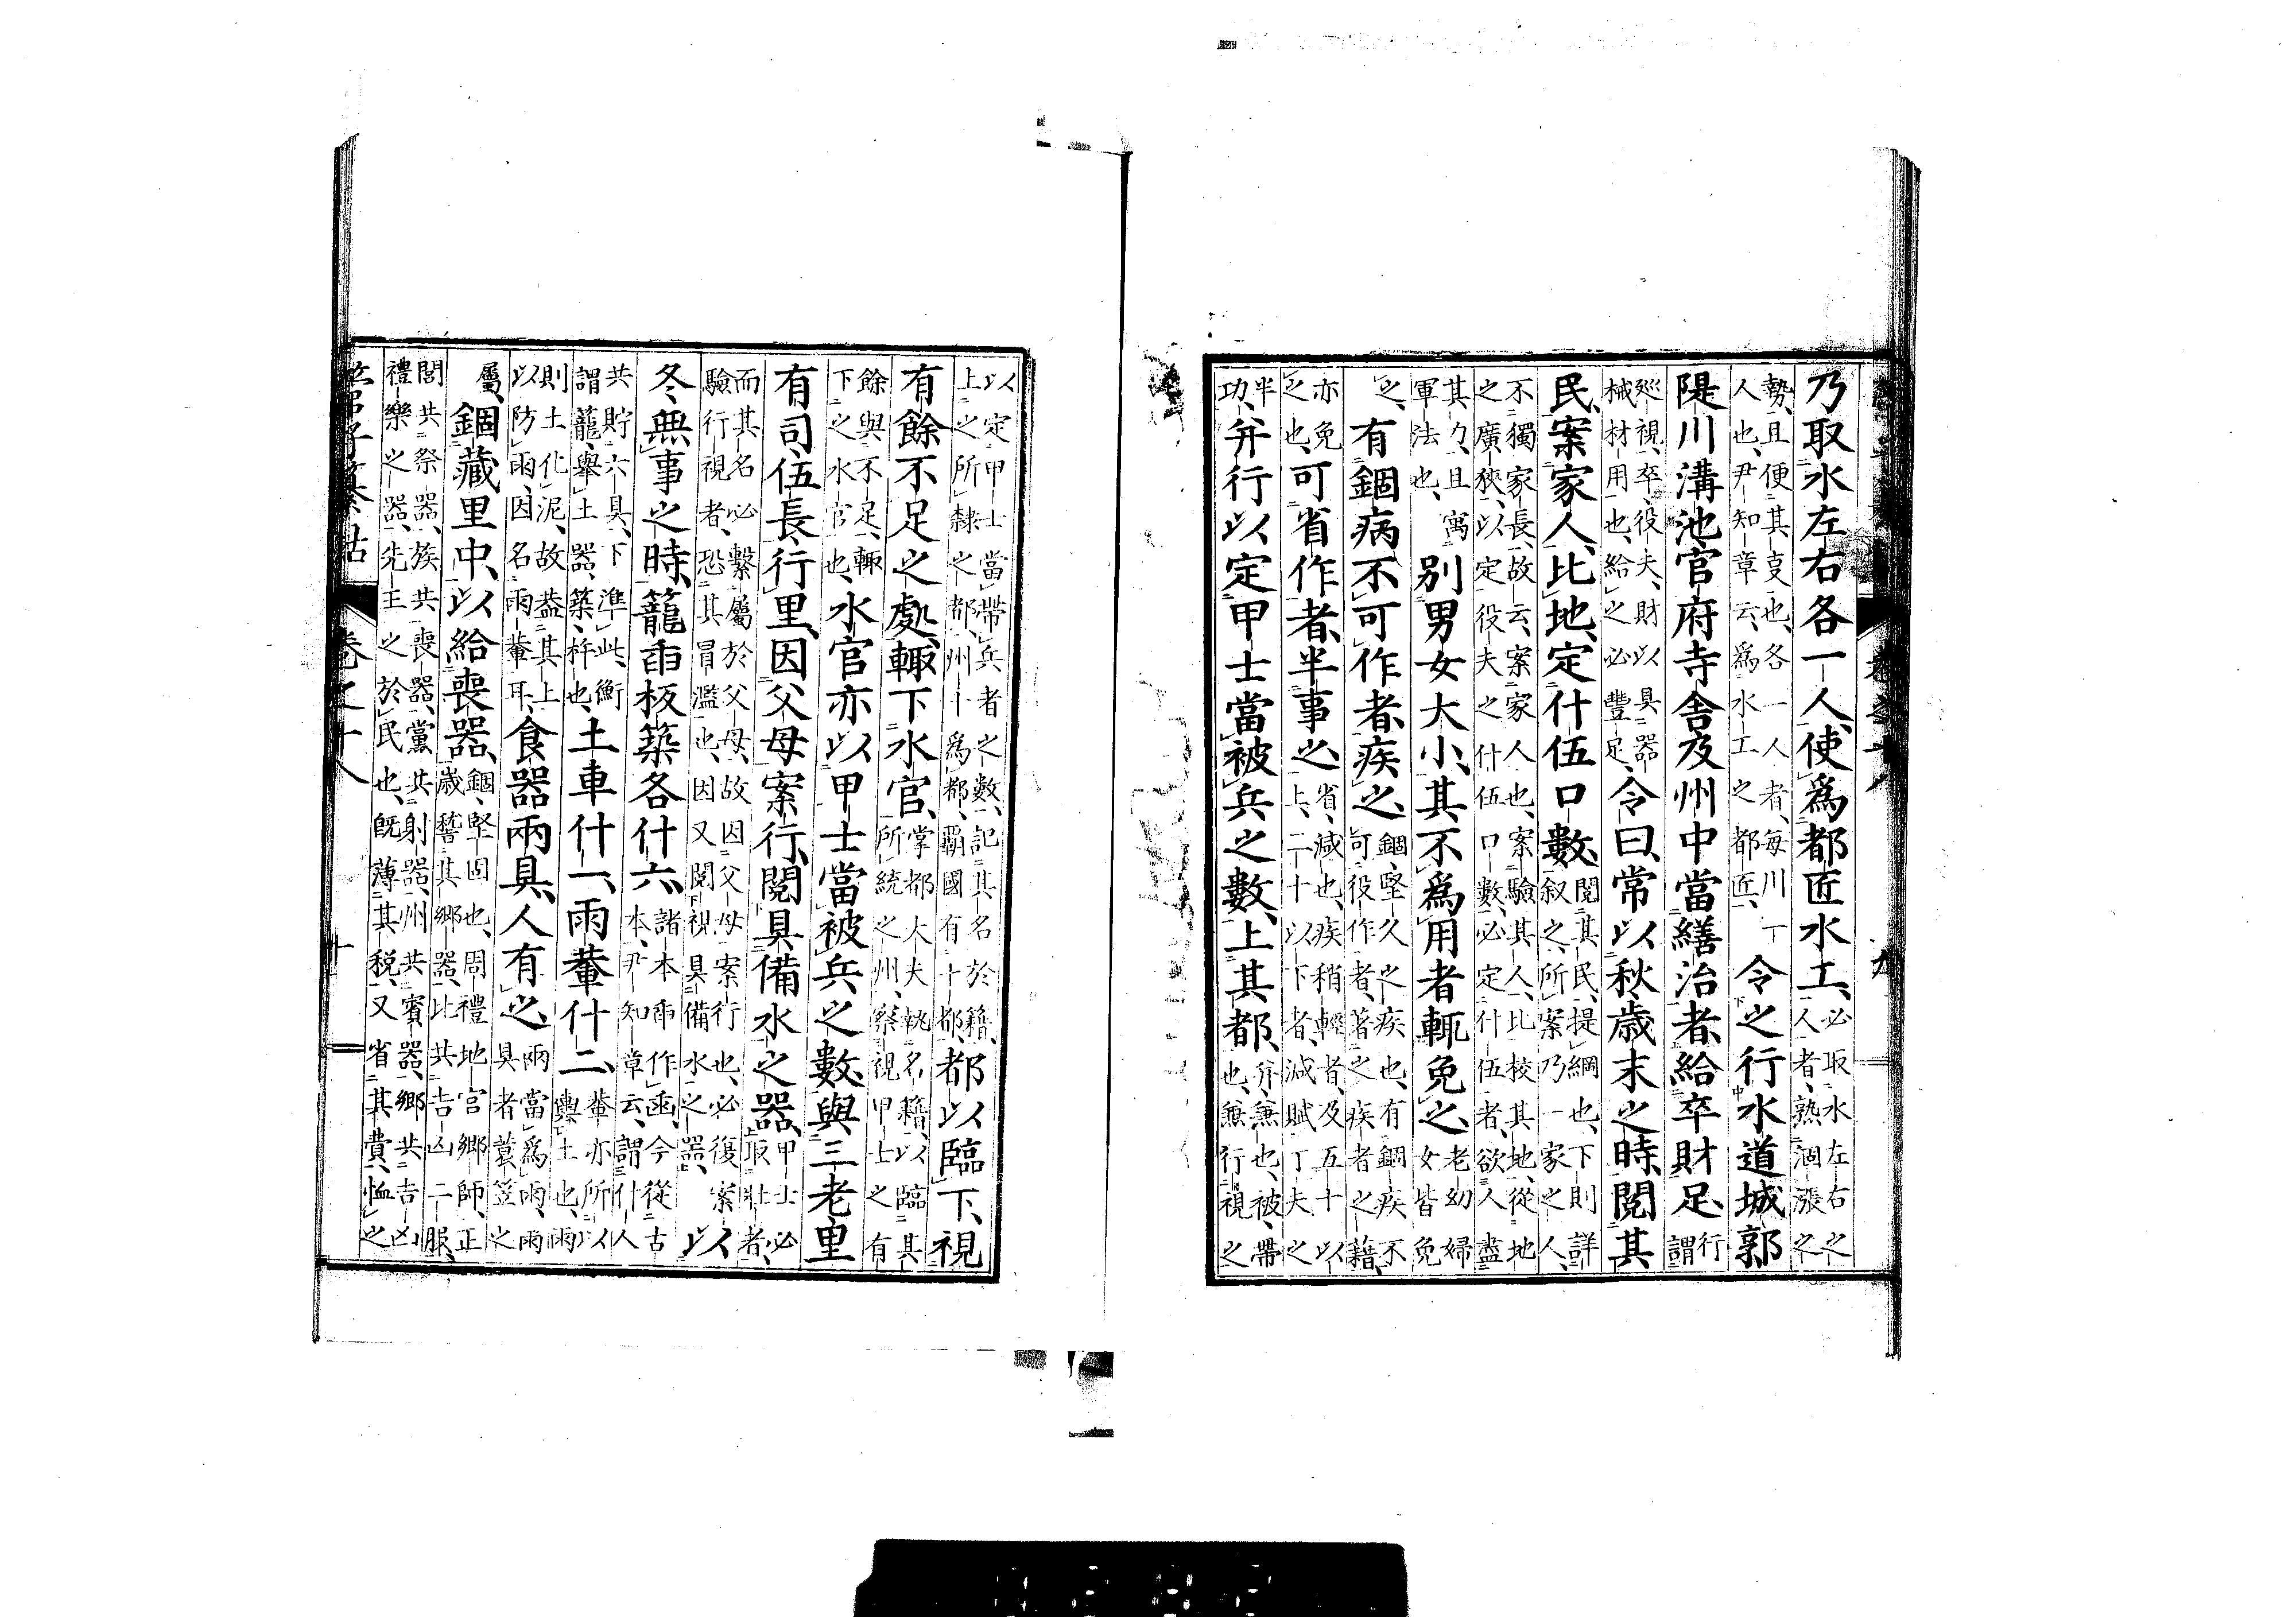 卷之十八 九
乃取水左右各一人、使爲都匠水工、必取水左右之人者、熟涸漲之
勢、且便其叓也、各一人者、每川一人也、尹知章云、爲水工之都匠、令之行水道城郭
隄川溝池官府寺舍及州中當繕治者、給卒財足、行謂
巡視、卒、役夫、財以具器械材用也、給之必豐足、令曰、常以秋歲末之時、閱其
民、案家人、比地、定什伍口數、閱其民、提綱也、下則詳叙之、所案乃一家之人、
不獨家長、故云案家人也、案驗其人、比校其地、從地之廣狹、以定役夫之什伍口數、必定什伍者、欲人盡
其力、且寓軍法也、別男女大小、其不爲用者輒免之、老幼婦女皆免
之、有錮病不可作者、疾之、錮、堅久之疾也、有錮疾不可役作者、著之疾者之籍、
亦免之也、可省作者、半事之、省、減也、疾稍輕者、及五十以上、二十以下者、減賦丁夫之
半功、幷行以定甲士當被兵之數、上其都、幷、兼也、被、帶也、兼行視之
以定甲士當帶兵者之數、記其名於籍、上之所隸之都、州十爲都、霸國有十都、都以臨下、視
有餘不足之處、輒下水官、掌都大夫執名籍以臨其所統之州、察視甲士之有
餘與不足、輒下之水官也、水官亦以甲士當被兵之數、與三老里
有司、伍長、行里、因父母案行、閱具備水之器、甲士必取壯者、
而其名必繫屬於父母、故因父母案行也、必復案驗行視者、恐其冒濫也、因又閱視具備水之器、以
冬無事之時、籠臿板築各什六、諸本臿作函、今從古本、尹知章云、謂什人
共貯六具、下準此、衡謂籠、擧土器、築、杵也、土車什一、雨輂什二、輂亦所以輿土也、雨
則土化泥、故葢其上以防雨、因名雨輂耳、食器兩具、人有之、兩當爲雨、雨具者蓑笠之
屬、錮藏里中、以給喪器、錮、堅固也、周禮地官鄉師、正歲稽其鄉器、比共吉凶二服、
閭共祭器、族共喪器、黨共射器、州共賓器、鄉共吉凶禮樂之器、先王之於民也、既薄其稅、又省其費、恤之
管子纂詁 卷之十八 十